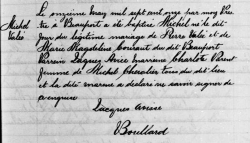 Michel
Valé
Le onziéme may mil sept cent onze par moy Ptre
à Beauport a été baptisé Michel né le dit
jour du légitime mariage de Pierre Valé et de
Marie Magdeleine du dit Beauport
Parrein Jaques Avice marraine Charlotte Parent
femme de Michel Chevalier tous du dit lieu
et la dite marene a déclaré ne savoir signer de
ce enquise
Jacques Avisse
Boullard